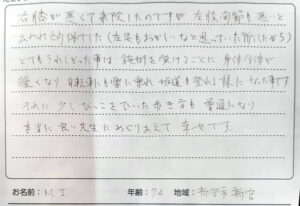 右膝が悪くて来院したのですが左股関節も悪いと
言われ納得でした(左足もおかしいなと思っていた所でしたから)
とてもうれしかった事は施術を受けるごとに身体全体が
軽くなり自転車も楽に乗れ坂道も登れる様になった事です
それに少しびっこをひいた歩き方も普通になり
本当に良い先生にめぐりあえて幸せです。
お名前:M.I 年齢:72 地域:新宮市新宮